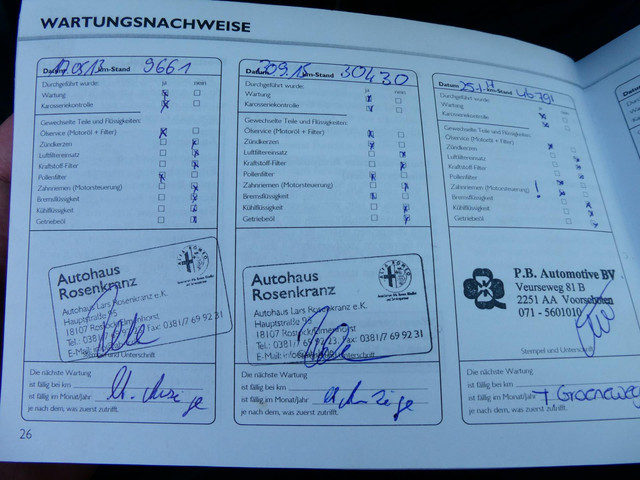 WARTUNGSNACHWEISE
Datum km-Stand 9661
Durchgeführt wurde: ja nein
Wartung
Karosseriekontrolle
Gewechselte Teile und Flüssigkeiten:
Ölservice (Motoröl + Filter)
Zündkerzen
Luftfiltereinsatz
Kraftstoff-Filter
Pollenfilter
Zahnriemen (Motorsteuerung)
Bremsflüssigkeit
Kühlflüssigkeit
Getriebeöl
Autohaus
Rosenkranz
Autohaus Lars Rosenkranz e.K.
Hauptstraße 95
18107 Rostock/Elmenhorst
Tel.: 0381/7 69 92 23, Fax: 0381/7 69 92 31
E-Mail:
Stempel und Unterschrift
Die nächste Wartung
ist fällig bei km
ist fällig im Monat/Jahr lt. Anzeige
je nach dem, was zuerst zutrifft.
26
Datum km-Stand 30430
Durchgeführt wurde: ja nein
Wartung
Karosseriekontrolle
Gewechselte Teile und Flüssigkeiten:
Ölservice (Motoröl + Filter)
Zündkerzen
Luftfiltereinsatz
Kraftstoff-Filter
Pollenfilter
Zahnriemen (Motorsteuerung)
Bremsflüssigkeit
Kühlflüssigkeit
Getriebeöl
Autohaus
Rosenkranz
Autohaus Lars Rosenkranz e.K.
Hauptstraße 95
18107 Rostock/Elmenhorst
Tel.: 0381/7 69 92 23, Fax: 0381/7 69 92 31
E-Mail:
Stempel und Unterschrift
Die nächste Wartung
ist fällig bei km
ist fällig im Monat/Jahr lt. Anzeige
je nach dem, was zuerst zutrifft.
Datum km-Stand 46791
Durchgeführt wurde: ja nein
Wartung
Karosseriekontrolle
Gewechselte Teile und Flüssigkeiten:
Ölservice (Motoröl + Filter)
Zündkerzen
Luftfiltereinsatz
Kraftstoff-Filter
Pollenfilter
Zahnriemen (Motorsteuerung) !
Bremsflüssigkeit
Kühlflüssigkeit
Getriebeöl
P.B. Automotive BV
Veurseweg 81 B
2251 AA Voorschoten
071 - 5601010
Stempel und Unterschrift
Die nächste Wartung
ist fällig bei km
ist fällig im Monat/Jahr Groeneweg
je nach dem, was zuerst zutrifft.